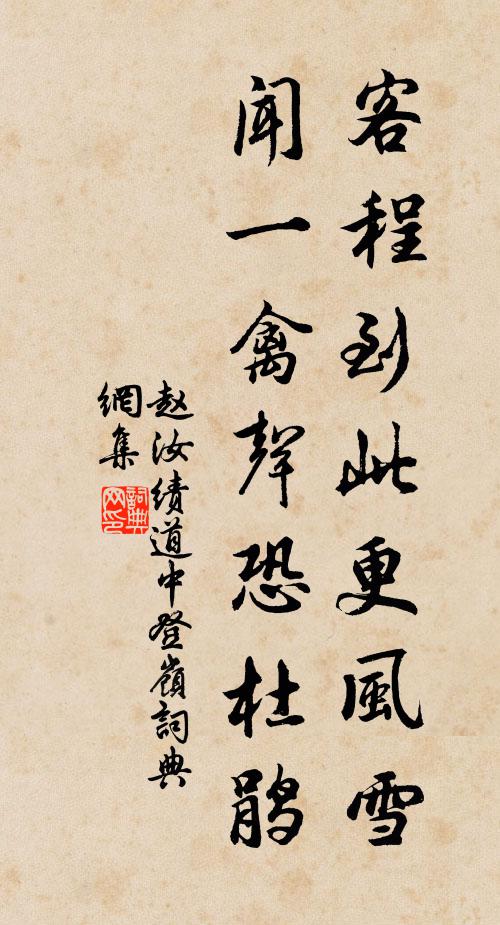 客程到此更風雪
聞一禽聲恐杜鹃
赵汝绩道中登嶺詞典
網集
詞典
网印